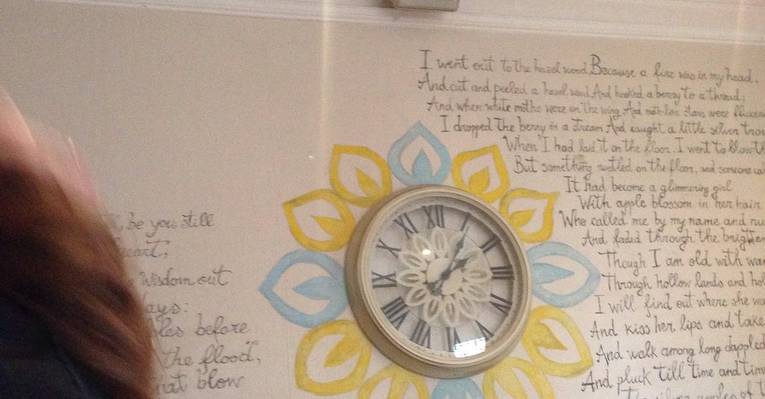 I went out to the hazel wood, Because a fire was in my head,
And cut and peeled a hazel wand, And hooked a berry to a thread;
And when white moths were on the wing, And moth-like stars were
I dropped the berry in a stream And caught a little silver
When I had laid it on the floor I went to blow
But something rustled on the floor, and someone
It had become a glimmering girl
With apple blossom in her hair
Who called me by my name and
And faded through the
Though I am old with
Through hollow lands and
I will find out where she
And kiss her lips and take
And walk among long dappled
And pluck till time and
be you still
Wisdom out
before
the flood,
that blow
XII
I
II
III
IX
X
XI